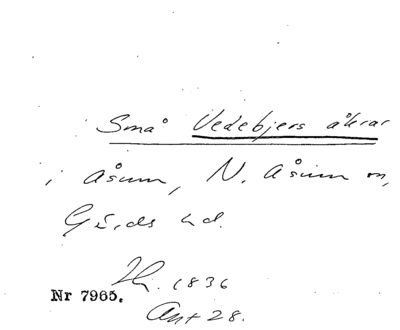 Små Vedebjers åkrar
i Åsum, N. Åsum sn,
Gärds hd.
1836
Nr 7965.
Akt 28.